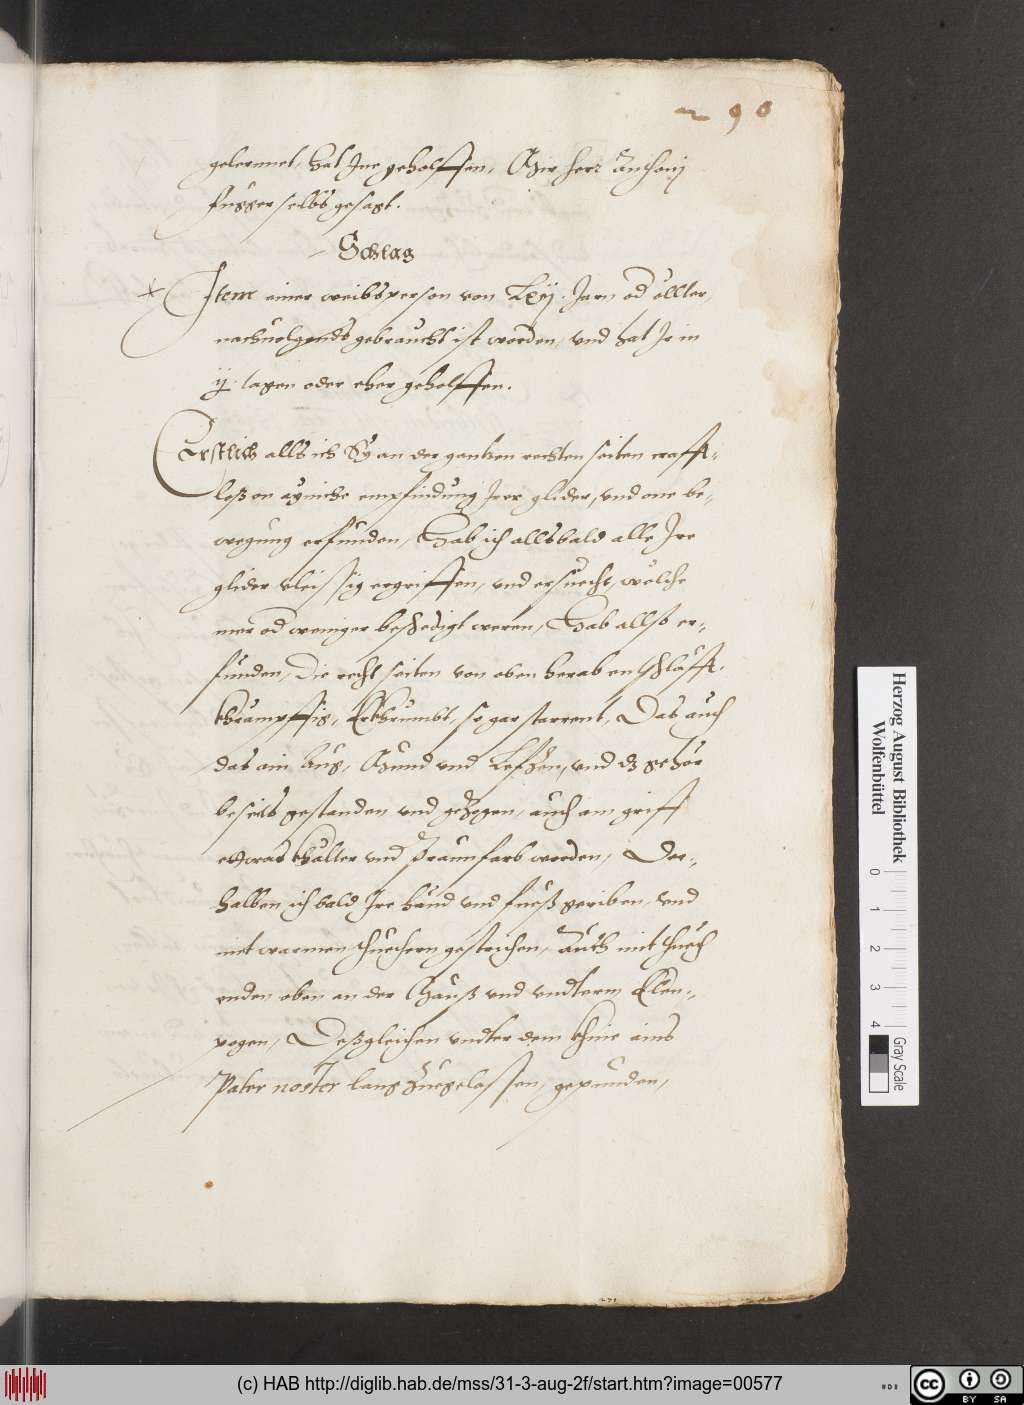 290
gelernnet, hat Ine geholffen, Mir herr Anthonj
fugger selbs gesagt.
Schlag
Item einer weibsperson von Lxij. Jarn od öllter
nachuolgends gebraucht ist worden, vnd hat Ir in
ij. tagen oder eher geholffen.
Erstlich alls ich Sy an der gantzen rechten seiten crafft-
loß on ayniche empfindung Irer glider, vnd one be-
wegung erfunden, Hab ich allsbald alle Ire
glider vleissig ergriffen, vnd ersuecht, wölche
mer od weniger beschedigt weren, Hab allso er-
funden, Die recht seiten von oben herab entschlafft.
khrampffig, Erkhrumbt, so gar starrent, Das auch
das ain Aug, Mund vnd Lefftzen, vnd dz gehör
beseits gestanden vnd getzogen, auch am griff
etwas khällter vnd praunfarb worden, Der-
halben ich bald Ire händ vnd fueß geriben, vnd
mit warmen thuechern gestrichen, Auch mit thuech
enden oben an der Mauß vnd vndterm Elen-
pogen, Deßgleichen vndter dem khnie ains
Pater noster lang zuegelassen, gepunden,
Herzog August Bibliothek
Wolfenbüttel
0 1 2 3 4
Gray Scale
(c) HAB http://diglib.hab.de/mss/31-3-aug-2f/start.htm?image=00577
cc BY SA